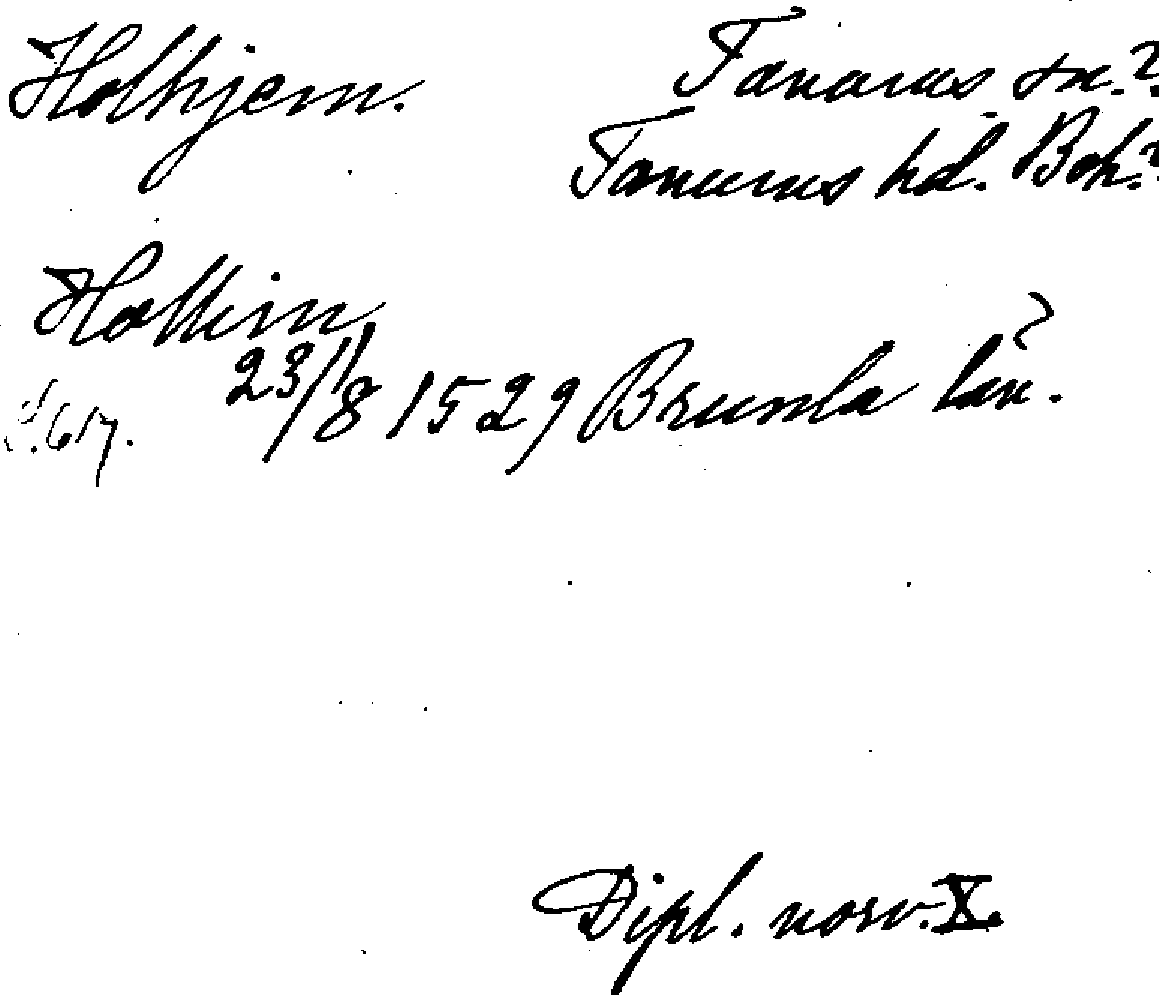 Holhjem. Tanums sn.?
Tanums hd. Boh.?
Hollim,
23/11 8 1529 Brunla län.
S. 617.
Dipl. norv. X.